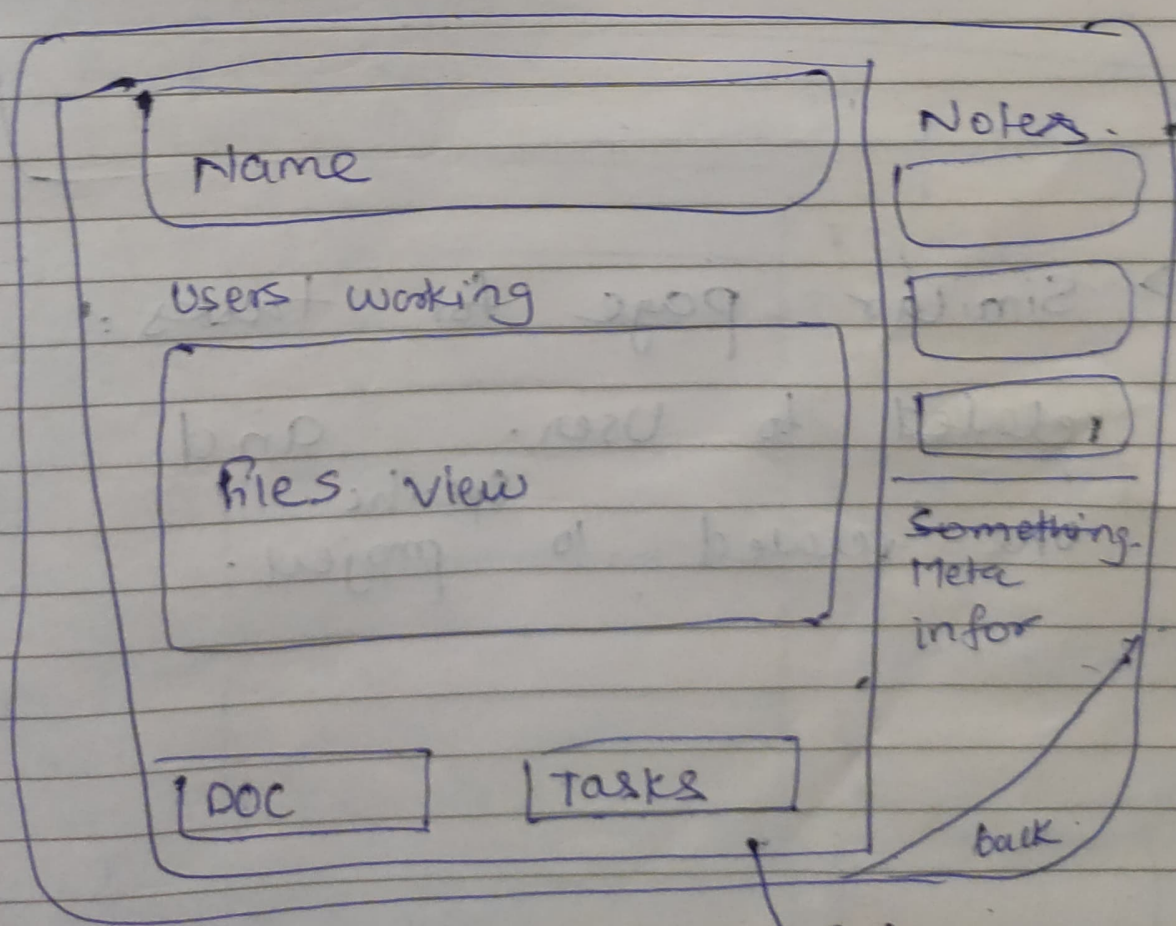 Name
Users working
Files view
DOC
Tasks
Notes.
Something
Meta
infor
back